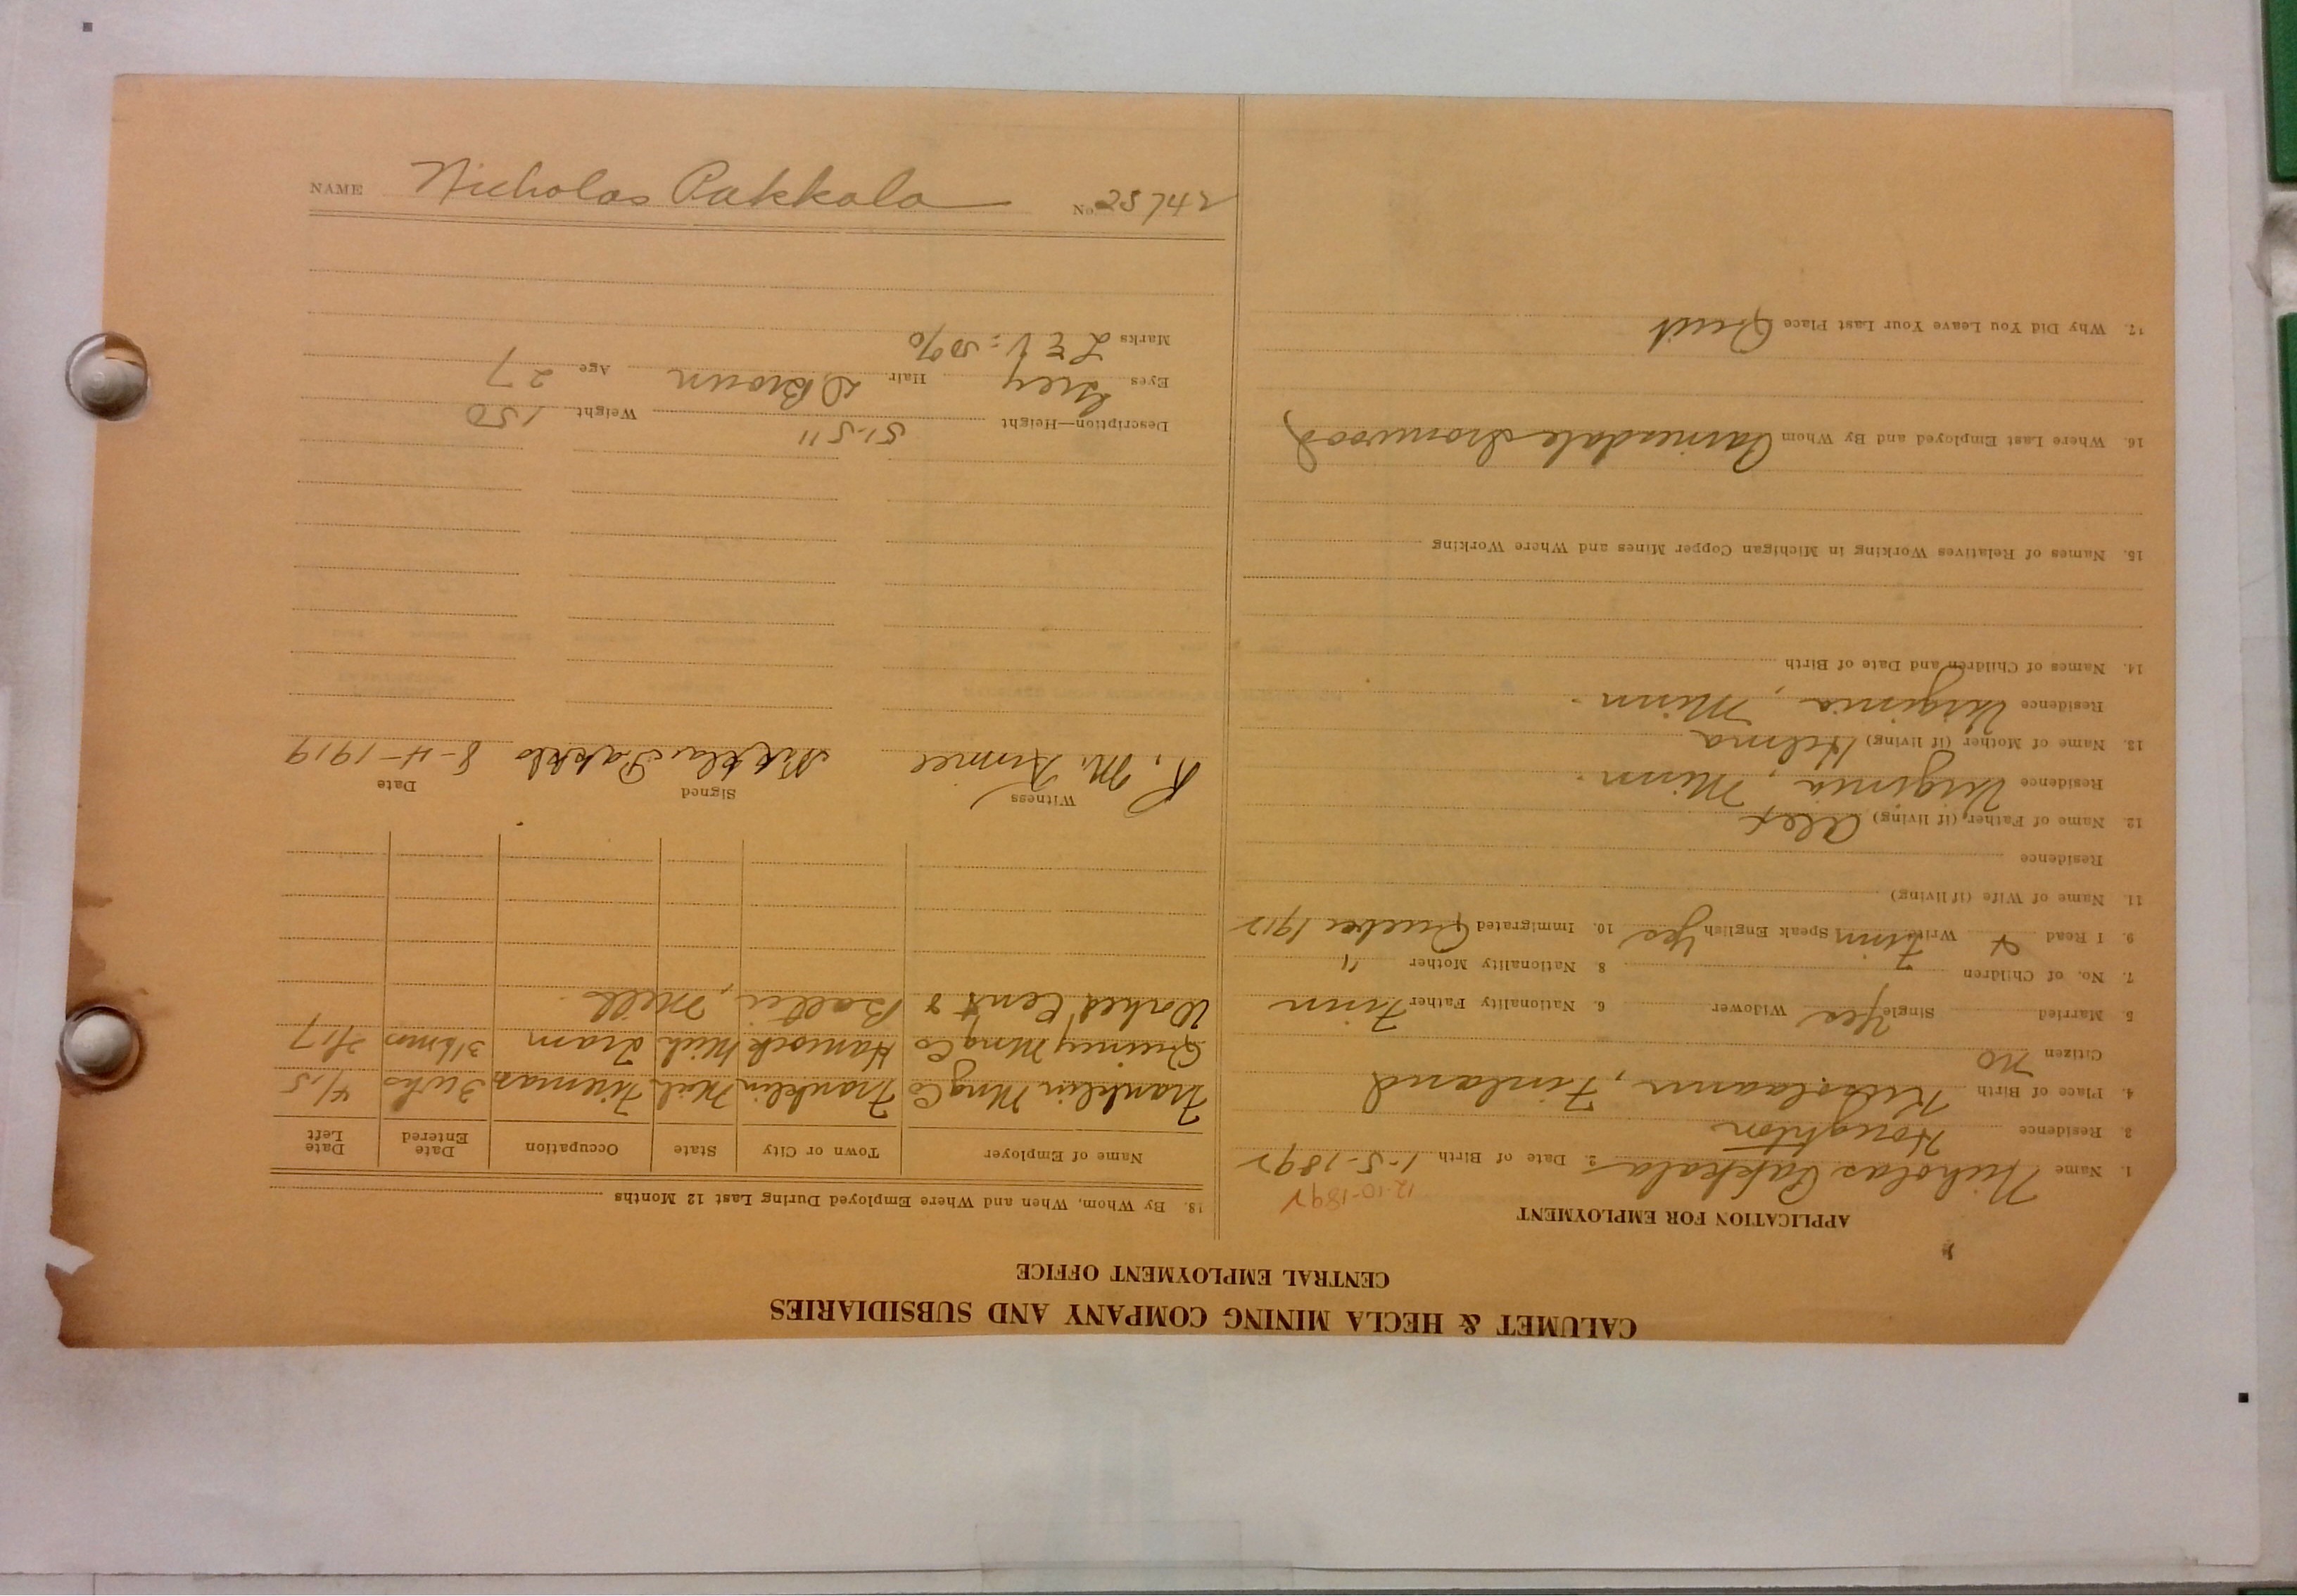 CALUMET & HECLA MINING COMPANY AND SUBSIDIARIES
CENTRAL EMPLOYMENT OFFICE
APPLICATION FOR EMPLOYMENT
12-10-1892
1. Name Nicholas Pakkala 2. Date of Birth 1-5-1892
3 Residence Houghton
4. Place of Birth Finland
Citizen No
5 Married Single Yes Widower 6. Nationality Father Finn
7. No. of Children 8 Nationality Mother "
9. I Read & Write Finn Speak English Yes 10. Immigrated Quebec 1912
11. Name of Wife (if living)
Residence
12. Name of Father (if living) Alex
Residence Virginia, Minn.
13. Name of Mother (if living) Hilma
Residence Virginia, Minn.
14. Names of Children and Date of Birth
15. Names of Relatives Working in Michigan Copper Mines and Where Working
16. Where Last Employed and By Whom Ironwood
17. Why Did You Leave Your Last Place Quit
18. By Whom, When and Where Employed During Last 12 Months
Name of Employer Town or City State Occupation Date Entered Date Left
Franklin Mng Co Franklin Mich Trimmer 3 wks 4/15
Quincy Mng Co Hancock Mich Tram 3 1/2 mos 2/17
Worked Cent & Baltic, Mill.
Witness Signed Date
R. M. 8-4-1919
Description—Height 5'-5" Weight 150
Eyes Grey Hair D Brown Age 27
Marks L E V = 50%
NAME Nicholas Pakkala No. 25742